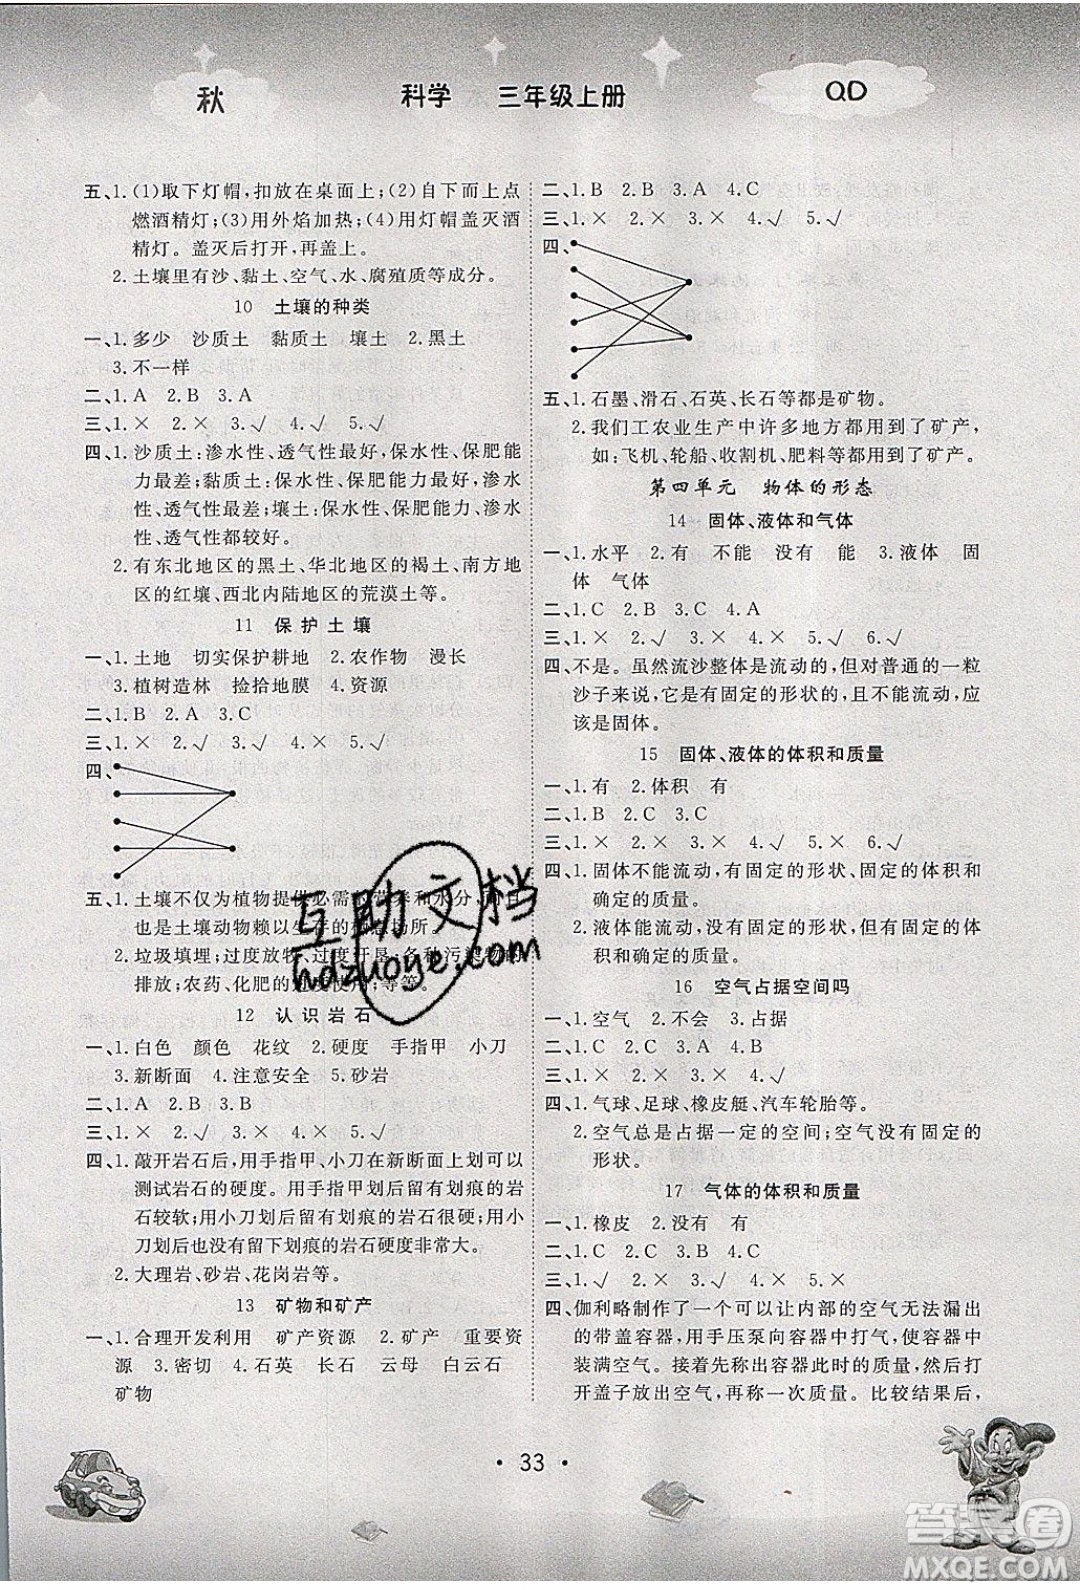 秋
科学 三年级上册
QD
五、1.(1)取下灯帽,扣放在桌面上;(2)自下而上点
燃酒精灯;(3)用外焰加热;(4)用灯帽盖灭酒
精灯。盖灭后打开,再盖上。
2.土壤里有沙、黏土、空气、水、腐殖质等成分。
10 土壤的种类
一、1.多少 沙质土 黏质土 壤土 2.黑土
3.不一样
二、1.A 2.B 3.A
三、1.× 2.× 3.√ 4.√ 5.√
四、1.沙质土:渗水性、透气性最好,保水性、保肥能
力最差;黏质土:保水性、保肥能力最好,渗水
性、透气性最差;壤土:保水性、保肥能力,渗水
性、透气性都较好。
2.有东北地区的黑土、华北地区的褐土、南方地
区的红壤、西北内陆地区的荒漠土等。
11 保护土壤
一、1.土地 切实保护耕地 2.农作物 漫长
3.植树造林 捡拾地膜 4.资源
二、1.B 2.A 3.C
三、1.× 2.√ 3.√ 4.× 5.√
四、
五、1.土壤不仅为植物提供必需的营养和水分,而且
也是土壤动物赖以生存的栖息场所。
2.垃圾填埋;过度放牧;过度开垦、各种污染物的
排放;农药、化肥的过度使用;等等。
12 认识岩石
一、1.白色 颜色 花纹 2.硬度 手指甲 小刀
3.新断面 4.注意安全 5.砂岩
二、1.A 2.B 3.B
三、1.× 2.√ 3.√ 4.× 5.√
四、1.敲开岩石后,用手指甲、小刀在新断面上划可以
测试岩石的硬度。用手指甲划后有划痕的岩
石较软;用小刀划后有划痕的岩石很硬;用小
刀划后没有留下划痕的岩石硬度非常大。
2.大理岩、砂岩、花岗岩等。
13 矿物和矿产
一、1.合理开发利用 矿产资源 2.矿产 重要资
源 3.密切 4.石英 长石 云母 白云石
矿物
二、1.B 2.B 3.A 4.C
三、1.× 2.× 3.× 4.√ 5.√
四、
五、1.石墨、滑石、石英、长石等都是矿物。
2.我们工农业生产中许多地方都用到了矿产,
如:飞机、轮船、收割机、肥料等都用到了矿产。
第四单元 物体的形态
14 固体、液体和气体
一、1.水平 2.有 不能 没有 能 3.液体 固
体 气体
二、1.C 2.B 3.C 4.A
三、1.× 2.√ 3.× 4.× 5.√ 6.√
四、不是。虽然流沙整体是流动的,但对普通的一粒
沙子来说,它是有固定的形状的,且不能流动,应
该是固体。
15 固体、液体的体积和质量
一、1.有 2.体积 有
二、1.B 2.C 3.C
三、1.× 2.× 3.× 4.√ 5.× 6.√
四、1.固体不能流动,有固定的形状、固定的体积和
确定的质量。
2.液体能流动,没有固定的形状,有固定的体
积和确定的质量。
16 空气占据空间吗
一、1.空气 2.不会 3.占据
二、1.C 2.C 3.C 4.B
三、1.× 2.× 3.× 4.× 5.√
四、1.气球、足球、橡皮艇、汽车轮胎等。
2.空气总是占据一定的空间;空气没有固定的
形状。
17 气体的体积和质量
一、1.橡皮 2.没有 有
二、1.C 2.C 3.A 4.C
三、1.√ 2.× 3.× 4.× 5.√
四、伽利略制作了一个可以让内部的空气无法漏出
的带盖容器,用手压泵向容器中打气,使容器中
装满空气。接着先称出容器的质量,然后打
开盖子放出空气,再称一次质量。比较结果后,
· 33 ·
互助文档
hdzuoye.com
答案圈
MXQE.COM